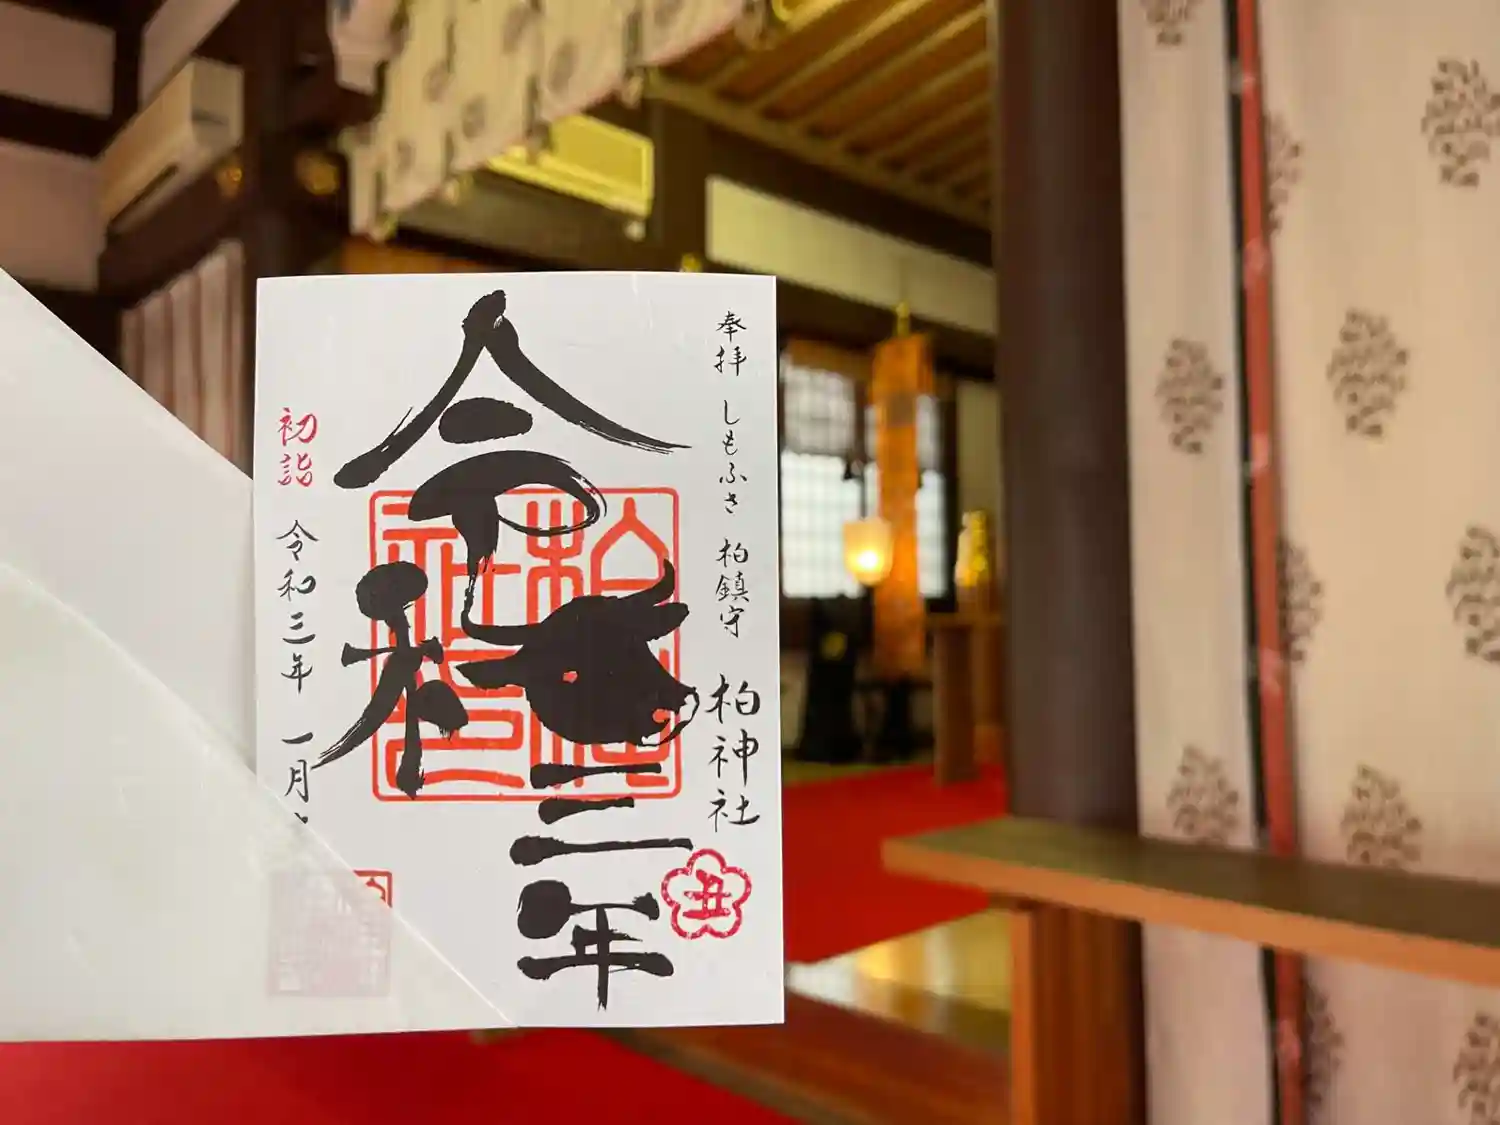 奉拝 しもふさ 柏鎮守 柏神社
令和三年
柏神社
丑
初詣 令和三年 一月